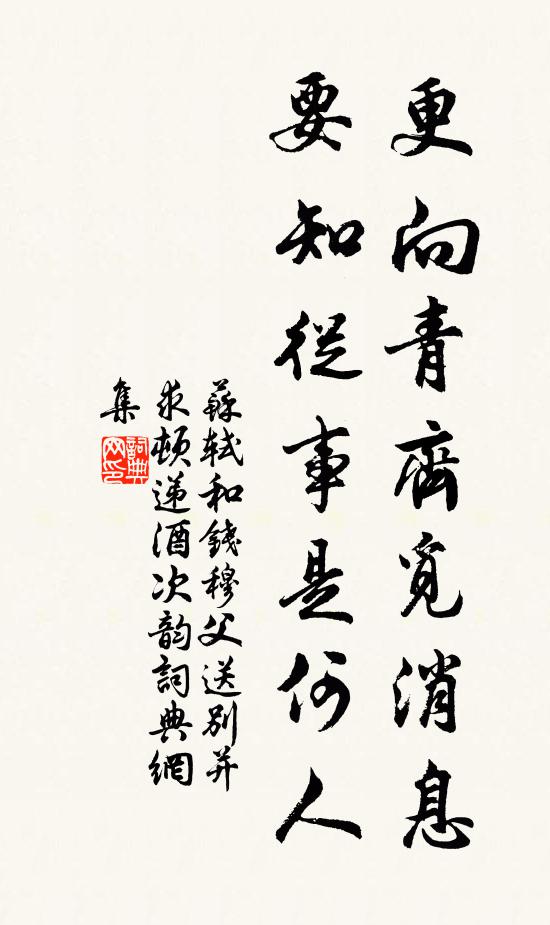 更向青齊覓消息
要知從事是何人
蘇軾和錢穆父送別并
求頓遞酒次韵詞典網
集
詞典網印